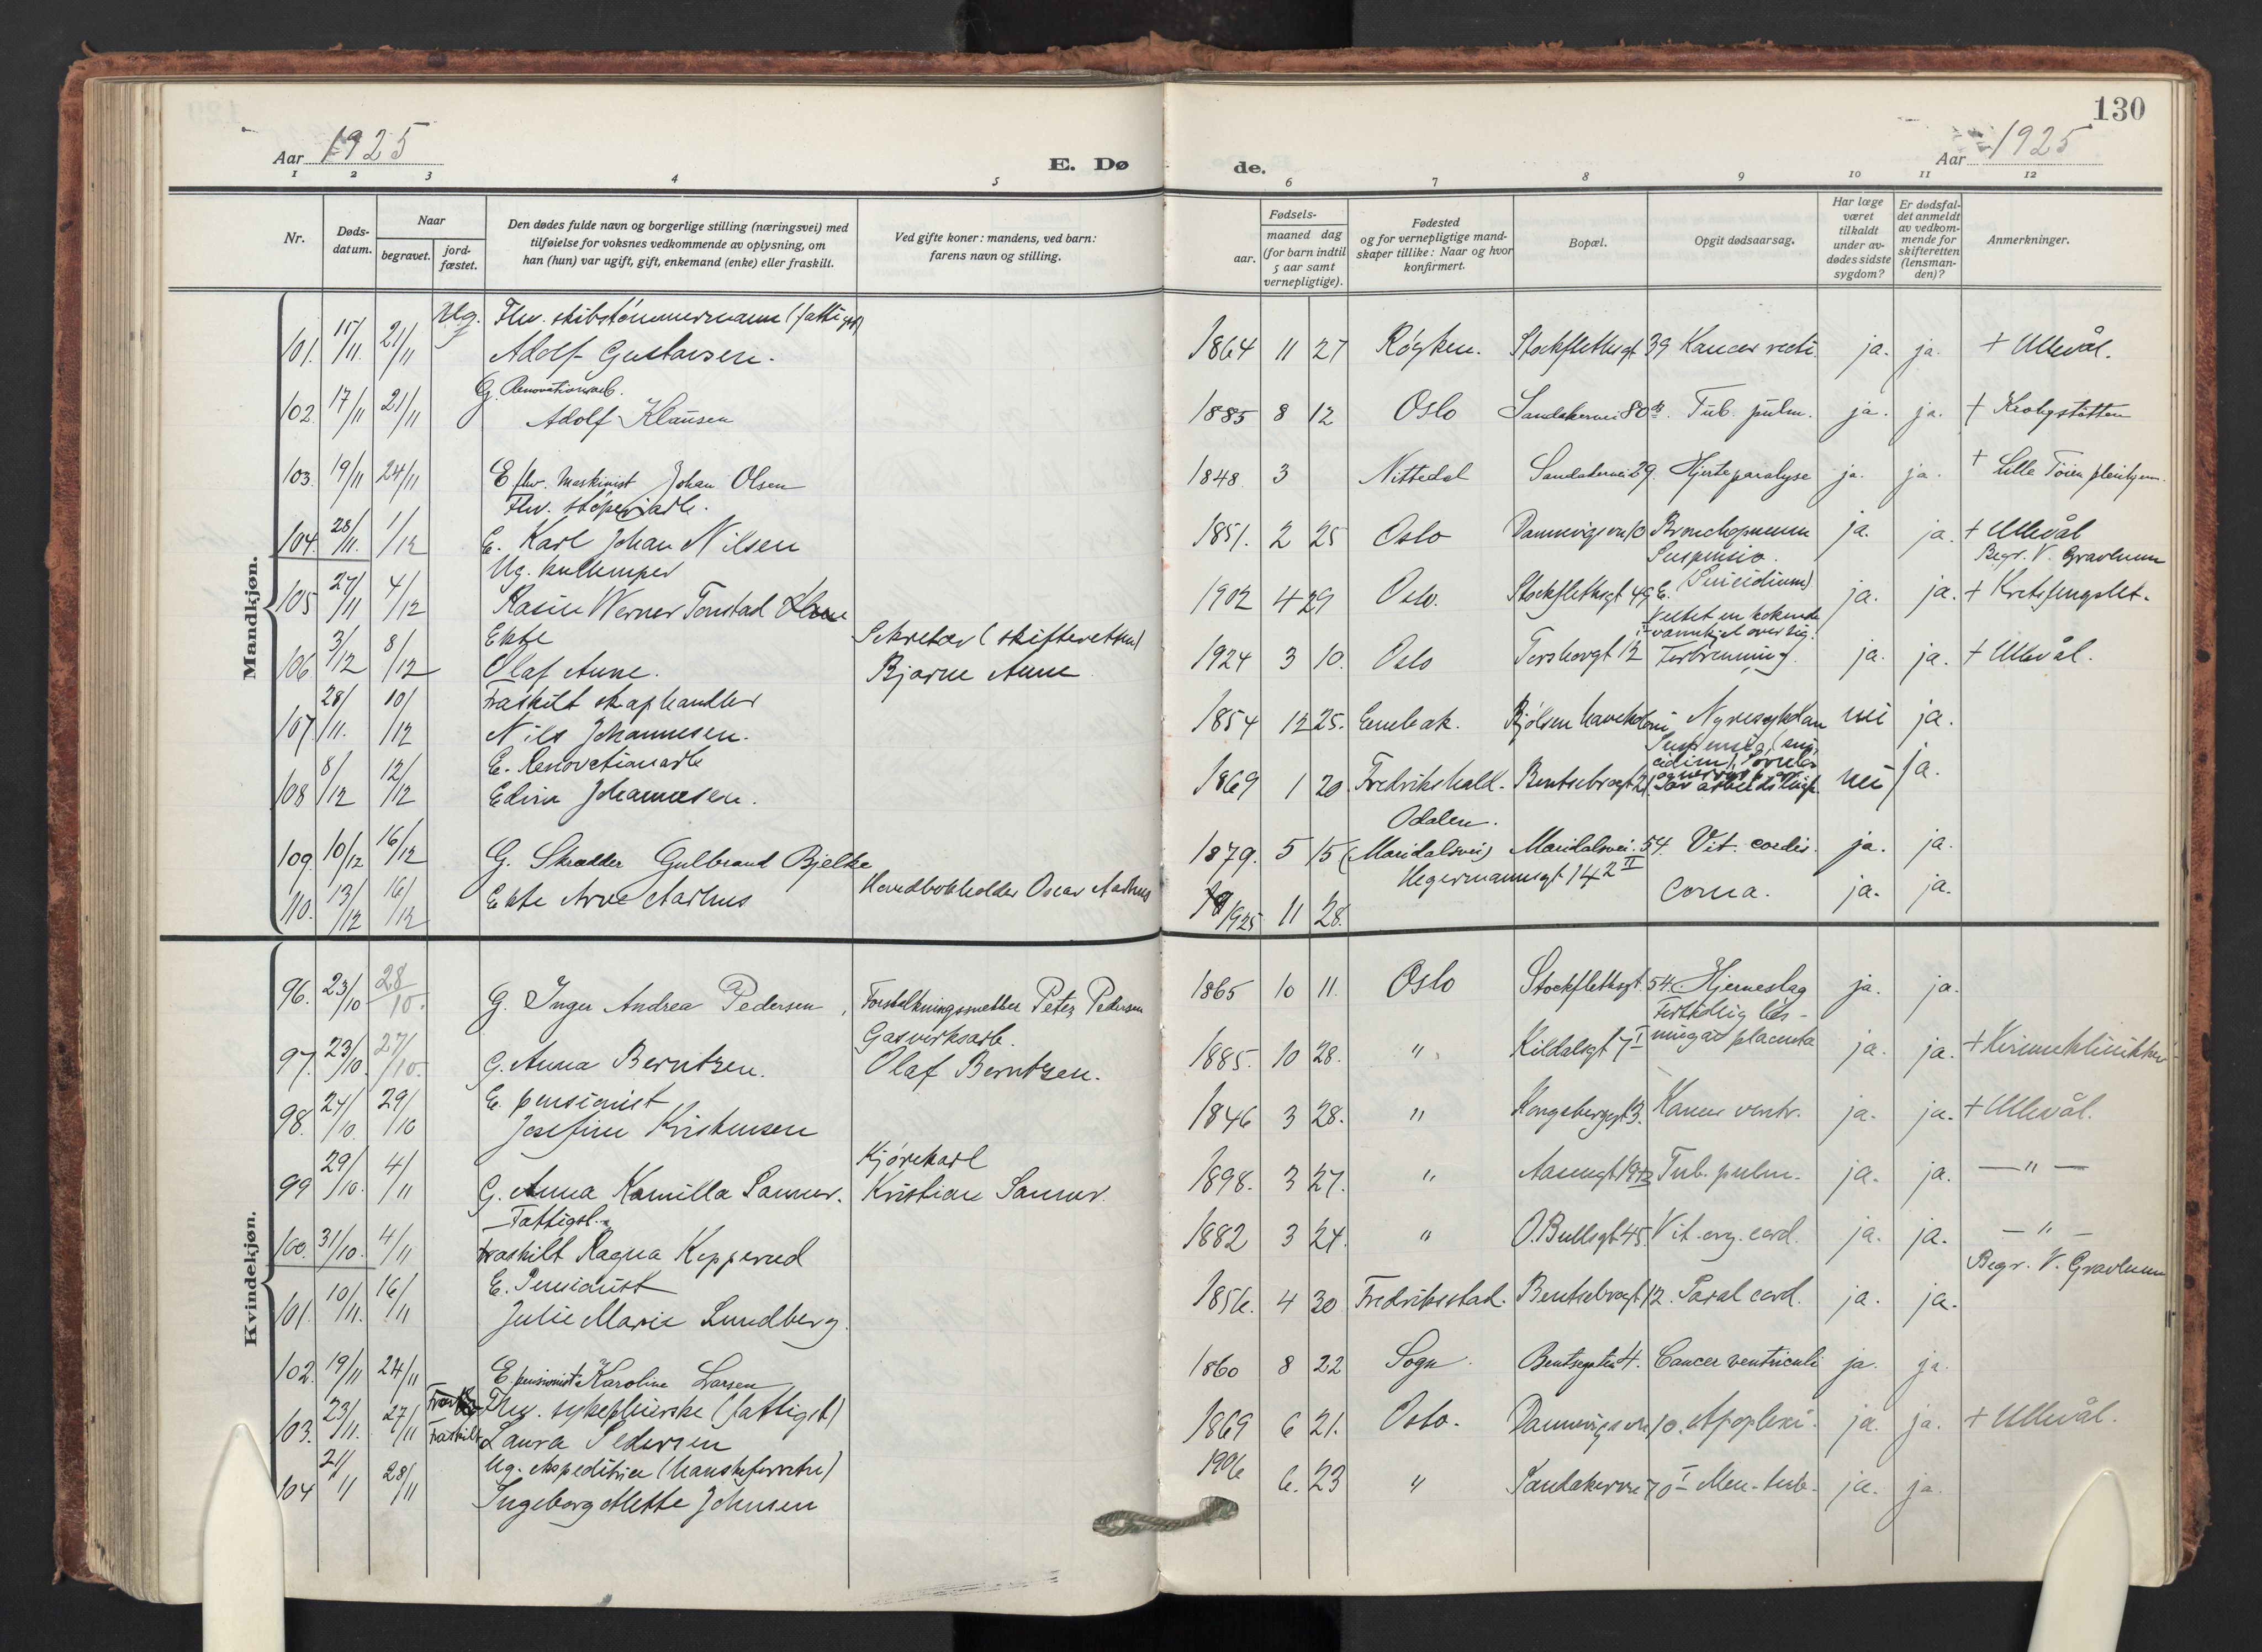 130
Aar 1925
E. Dø de.
Aar 1925
1 2 3 4 5 6 7 8 9 10 11 12
Nr.
Døds-datum.
Naar
begravet.
jord-fæstet.
Den dødes fulde navn og borgerlige stilling (næringsvei) med
tilføielse for voksnes vedkommende av oplysning, om
han (hun) var ugift, gift, enkemand (enke) eller fraskilt.
Ved gifte koner: mandens, ved barn:
farens navn og stilling.
Fødsels-
aar.
maaned dag
(for barn indtil
5 aar samt
vernepligtige).
Fødested
og for vernepligtige mand-
skaper tillike: Naar og hvor
konfirmert.
Bopæl.
Opgit dødsaarsag.
Har læge
været
tilkaldt
under av-
dødes sidste
sygdom?
Er dødsfal-
det anmeldt
av vedkom-
mende for
skifteretten
(lensman-
den)?
Anmerkninger.
Mandkjøn.
Ug. Fhv. skibstømmermann (fattigst)
101. 15/11. 21/11 Adolf Gustavsen. 1864 11 27 Røyken. Stockflethsgt 39 Kancer recti ja. ja. + Ullevål.
G. Renovationsarb.
102. 17/11 21/11 Adolf Klausen 1885 8 12 Oslo Sandakervei 80 Tub. pulm. ja. ja. + Krohgstøtten
103. 19/11 24/11 E fhv. Maskinist Johan Olsen 1848 3 Nittedal Sandakervei 39. Hjerteparalyse ja. ja. + Lille Tøien pleiehjem.
Fhv. støperiarb.
104. 28/11. 1/12 E. Karl Johan Nilsen 1851. 2 25 Oslo Dannevigsvn 10 Bronchopneum ja. ja. + Ullevål
Begr. V. Gravlund
Ug. kullemper Suspensio.
105 27/11 4/12 Werner Tonstad 1902 4 29 Oslo. Stockflethsgt 49 E. (Suicidium) ja. ja. + Kretsfengslet.
Ekte Sekretær (skifteretten) Veltet en kokende
vannkjel over sig.
106. 3/12 8/12 Olaf Aune. Bjarne Aune 1924 3 10. Oslo Torshovgt 12 Forbrenning. ja. ja. + Ullevål.
Fraskilt skaphandler
107. 28/11. 10/12 Nils Johannesen. 1854 12 25. Enebak. Bjølsen havekoloni Nyresygdom nei ja.
E. Renovationsarb
108 8/12 12/12 Edvin Johannesen. 1869 1 20. Fredrikshald. Bentsebrogt 21 nei ja.
Odalen.
109. 10/12 16/12 G. Skrædder Gulbrand Bjelke 1879. 5 15 (Maridalsvei) Maridalsvei. 54. Vit. cordis. ja. ja.
Hegermannsgt 14 2 II
110. 13/12 16/12 Ekte Arve Aarhus Handbokholder Oscar Aarhus 1925 11 28. Coma. ja. ja.
Kvindekjøn.
96. 23/10 28/10. G. Inger Andrea Pedersen, Peter Pedersen 1865 10 11. Oslo Stockflethsgt. 54. Hjerneslag ja. ja.
Gasverksarb. Fortidlig løs-
97. 23/10. 27/10. G. Anna Berntzen. Olaf Berntzen. 1885. 10 28. " Kildalsgt 7 I ning av placenta ja. ja. + Kvinneklinikken
E. pensionist
98. 24/10. 29/10 Josefine Kristensen 1846 3 28. " Kongsbergsgt 3. Kancer ventr. ja. ja. + Ullevål.
Kjørekarl
99 29/10. 4/11 G. Anna Kamilla Sanner. Kristian Sanner. 1898. 3 27. " Tub. pulm. ja. ja. — " —
Fattigst.
100. 31/10. 4/11 Fraskilt Ragna Kopperud 1882 3 24. " O. Bullsgt 45. Vit. org. cord. ja. ja. — " —
Begr. V. Gravlund
E. Pensionist
101. 10/11. 16/11 Julie Marie Lundberg. 1856. 4 30 Fredriksstad. Bentsebrogt. 12. Paral cord. ja. ja.
102. 19/11 24/11 E. pensionist Karoline Larsen 1860 8 22 Sogn. Bentsegaten 4. Cancer ventriculi ja. ja.
Fhv. sykepleierske (fattigst)
103. 23/11. 27/11 Fraskilt Laura Pedersen 1869 6 21. Oslo. Dannevigsvn 10. Apoplexi. ja. ja. + Ullevål.
Ug. ekspeditrice (hanskeforretn)
104 21/11 28/11 Ingeborg Mette Johnsen 1906 6. 23 " Sandakervei 70 I Men. tub. ja. ja.